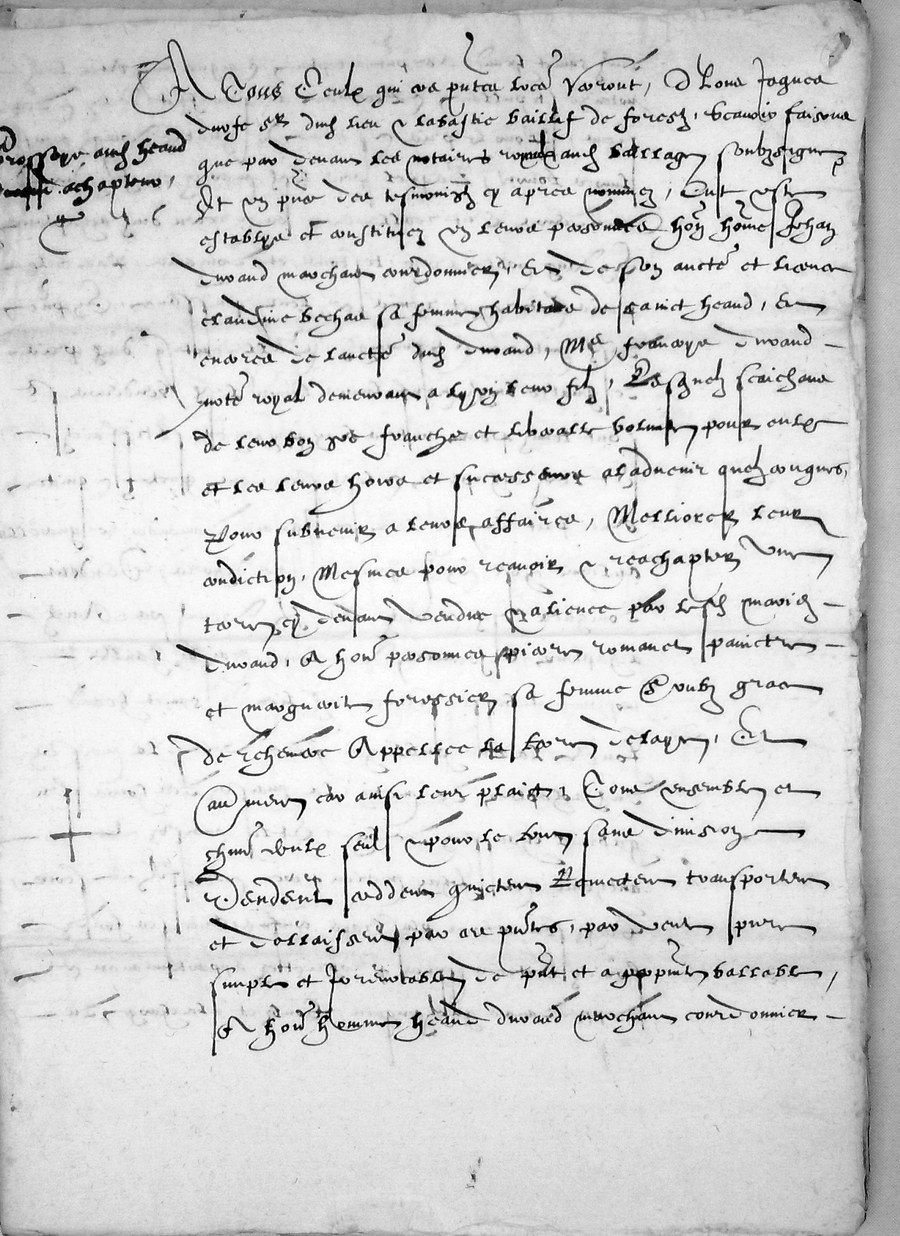 A Tous Ceulx qui ces pntes lrez verront, Nous Jaques
durfe sr dud lieu & labastie baillif de forestz, scavoir faisons
que par devant les notaires royaulx aud balliage soubzsignez
Et en pnce des tesmoingtz cy apres nommez, Ont este
establys et constituez en leurs personnes hon home Jehan
durand marchant courdonnier, Et de son aucte et licence
claudine bechas sa femme habitans de sainct heand, Et
encores de laucte dud durand, Me francoys durand
note royal demeurant a lyon leur filz, Lesquelz scaichans
de leur bon gre franche et liberalle volunte pour eulx
et les leurs hoirs et successeurs aladvenir quelzconques,
Pour subvenir a leurs affaires, Melliorer leur
condiction, Mesmes pour ravoir & reachapter une
terre cy devant vendue & alienee par lesd mariez
durand, A hon personnes pierre romanet painctre
et marguerite forissier sa femme Soubz grace
de rehemere Appellee la terre delaye, Et
aultrement car ainsi leur plaict, Tous ensemble et
chun deulx seul & pour le tout sans division
Vendent ceddent quictent Remectent transportent
et dellaissent par ces pntes, par vente pure
simple et Jrrevocable de pnt et a ppetuite vallable,
A hon homme heand durand marchant courdonnier